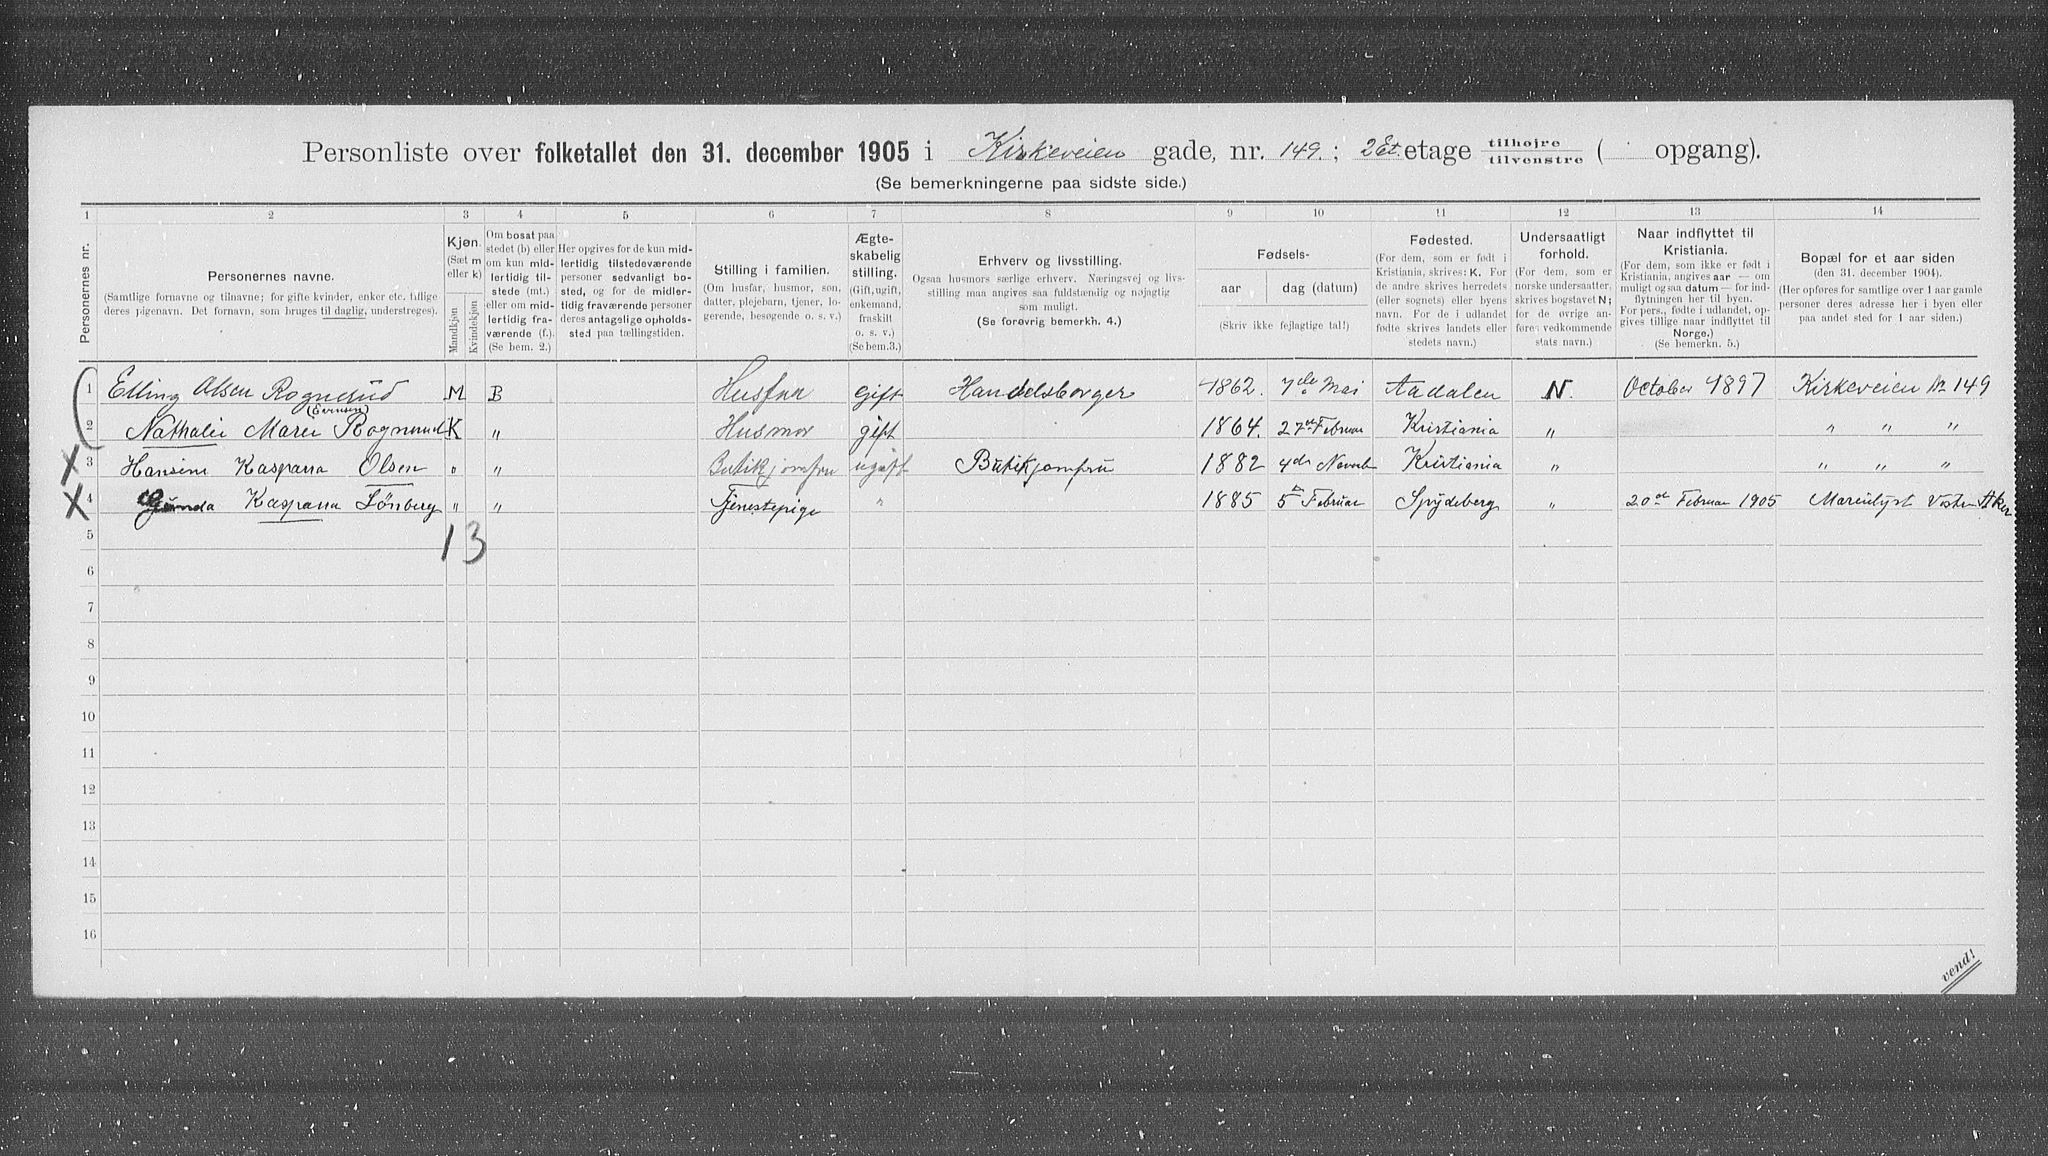 Personliste over folketallet den 31. december 1905 i Kirkeveien gade, nr. 149. ; 2 Et. etage tilhøjre / tilvenstre ( opgang).
(Se bemerkningerne paa sidste side.)
1 2 3 4 5 6 7 8 9 10 11 12 13 14
Personernes nr.
Personernes navne.
(Samtlige fornavne og tilnavne; for gifte kvinder, enker etc. tillige
deres pigenavn. Det fornavn, som bruges til daglig, understreges).
Kjøn.
(Sæt m
eller k)
Mandkjøn
Kvindekjøn
Om bosat paa
stedet (b) eller
om kun mid-
lertidig til-
stede (mt.)
eller om mid-
lertidig fra-
værende (f.).
(Se bem. 2.)
Her opgives for de kun mid-
lertidig tilstedeværende
personer sedvanligt bo-
sted, og for de midler-
tidig fraværende personer
deres antagelige opholds-
sted paa tællingstiden.
Stilling i familien.
(Om husfar, husmor, søn,
datter, plejebarn, tjener, lo-
gerende, besøgende o. s. v.)
Ægte-
skabelig
stilling.
(Gift, ugift,
enkemand,
fraskilt
o. s. v.)
(Se bem.3.)
Erhverv og livsstilling.
Ogsaa husmors særlige erhverv. Næringsvej og livs-
stilling maa angives saa fuldstændig og nøjagtig
som muligt.
(Se forøvrig bemerkh. 4.)
Fødsels-
aar
dag (datum)
(Skriv ikke fejlagtige tal!)
Fødested.
(For dem, som er født i
Kristiania, skrives: K. For
de andre skrives herredets
(eller sognets) eller byens
navn. For de i udlandet
fødte skrives landets eller
stedets navn.)
Undersaatligt
forhold.
(For dem, som er
norske undersaatter,
skrives bogstavet N;
for de øvrige an-
føres vedkommende
stats navn.)
Naar indflyttet til
Kristiania.
(For dem, som ikke er født i
Kristiania, angives aar — om
muligt ogsaa datum — for ind-
flytningen her til byen.
For pers., fødte i udlandet, op-
gives tillige naar indflyttet til
Norge.)
(Se bemerkn. 5.)
Bopæl for et aar siden
(den 31. december 1904).
(Her opføres for samtlige over 1 aar gamle
personer deres adresse her i byen eller
paa andet sted for 1 aar siden.)
1 Elling Olsen Rognerud M B Husfar gift Handelsborger 1862. 7de Mai Aadalen N. October 1897 Kirkeveien Nr 149
(Evensen)
2 Nathalie Maren Rognerud K " Husmor gift 1864. 27de Februar Kristiania " " " "
3 Hansine Kaspara Olsen " " Butikjomfru ugift Butikjomfru 1882 4de Novemb Kristiania " " " "
4 Gunda Kaspara Lønberg " " Tjenestepige " 1885 5te Februar Spydeberg " 20de Februar 1905 Marienlyst Vestre Aker
5 1 3
6
7
8
9
10
11
12
13
14
15
16
vend!